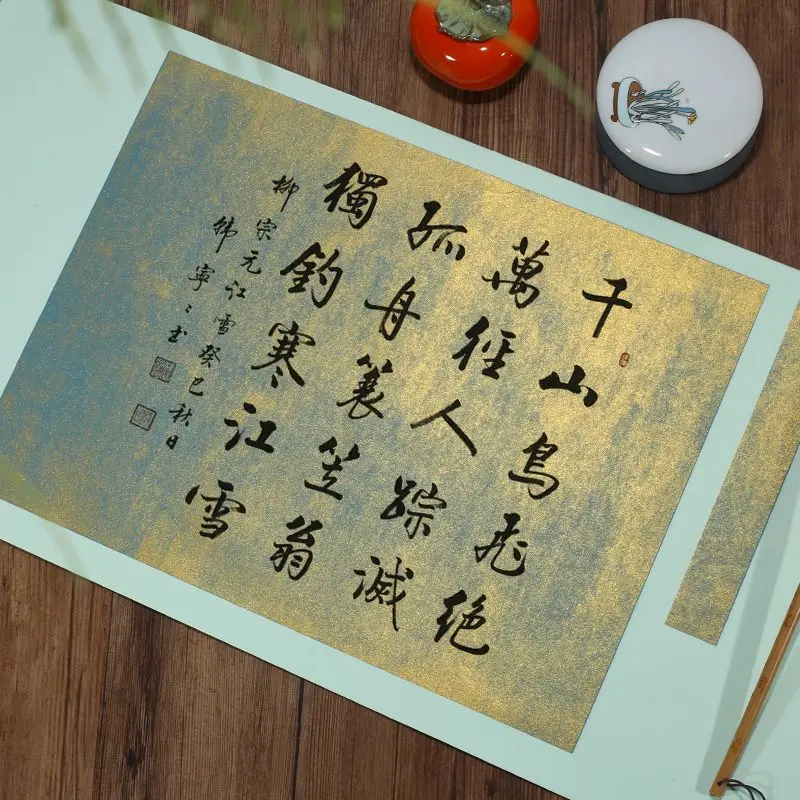 千山鳥飛絕
萬徑人踪滅
孤舟蓑笠翁
獨釣寒江雪
柳宗元江雪癸巳秋日
韩寧〻书